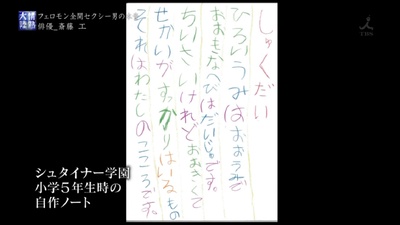 情熱大陸
フェロモン全開セクシー男の本音
俳優_斎藤 工
TBS
しゅくだい
ひろいうみは
おおきなへびはだいじゃです。
ちいさいけれどおおきくて
せかいがすっかりはいるもの
それはわたしのこころです。
シュタイナー学園
小学5年生時の
自作ノート